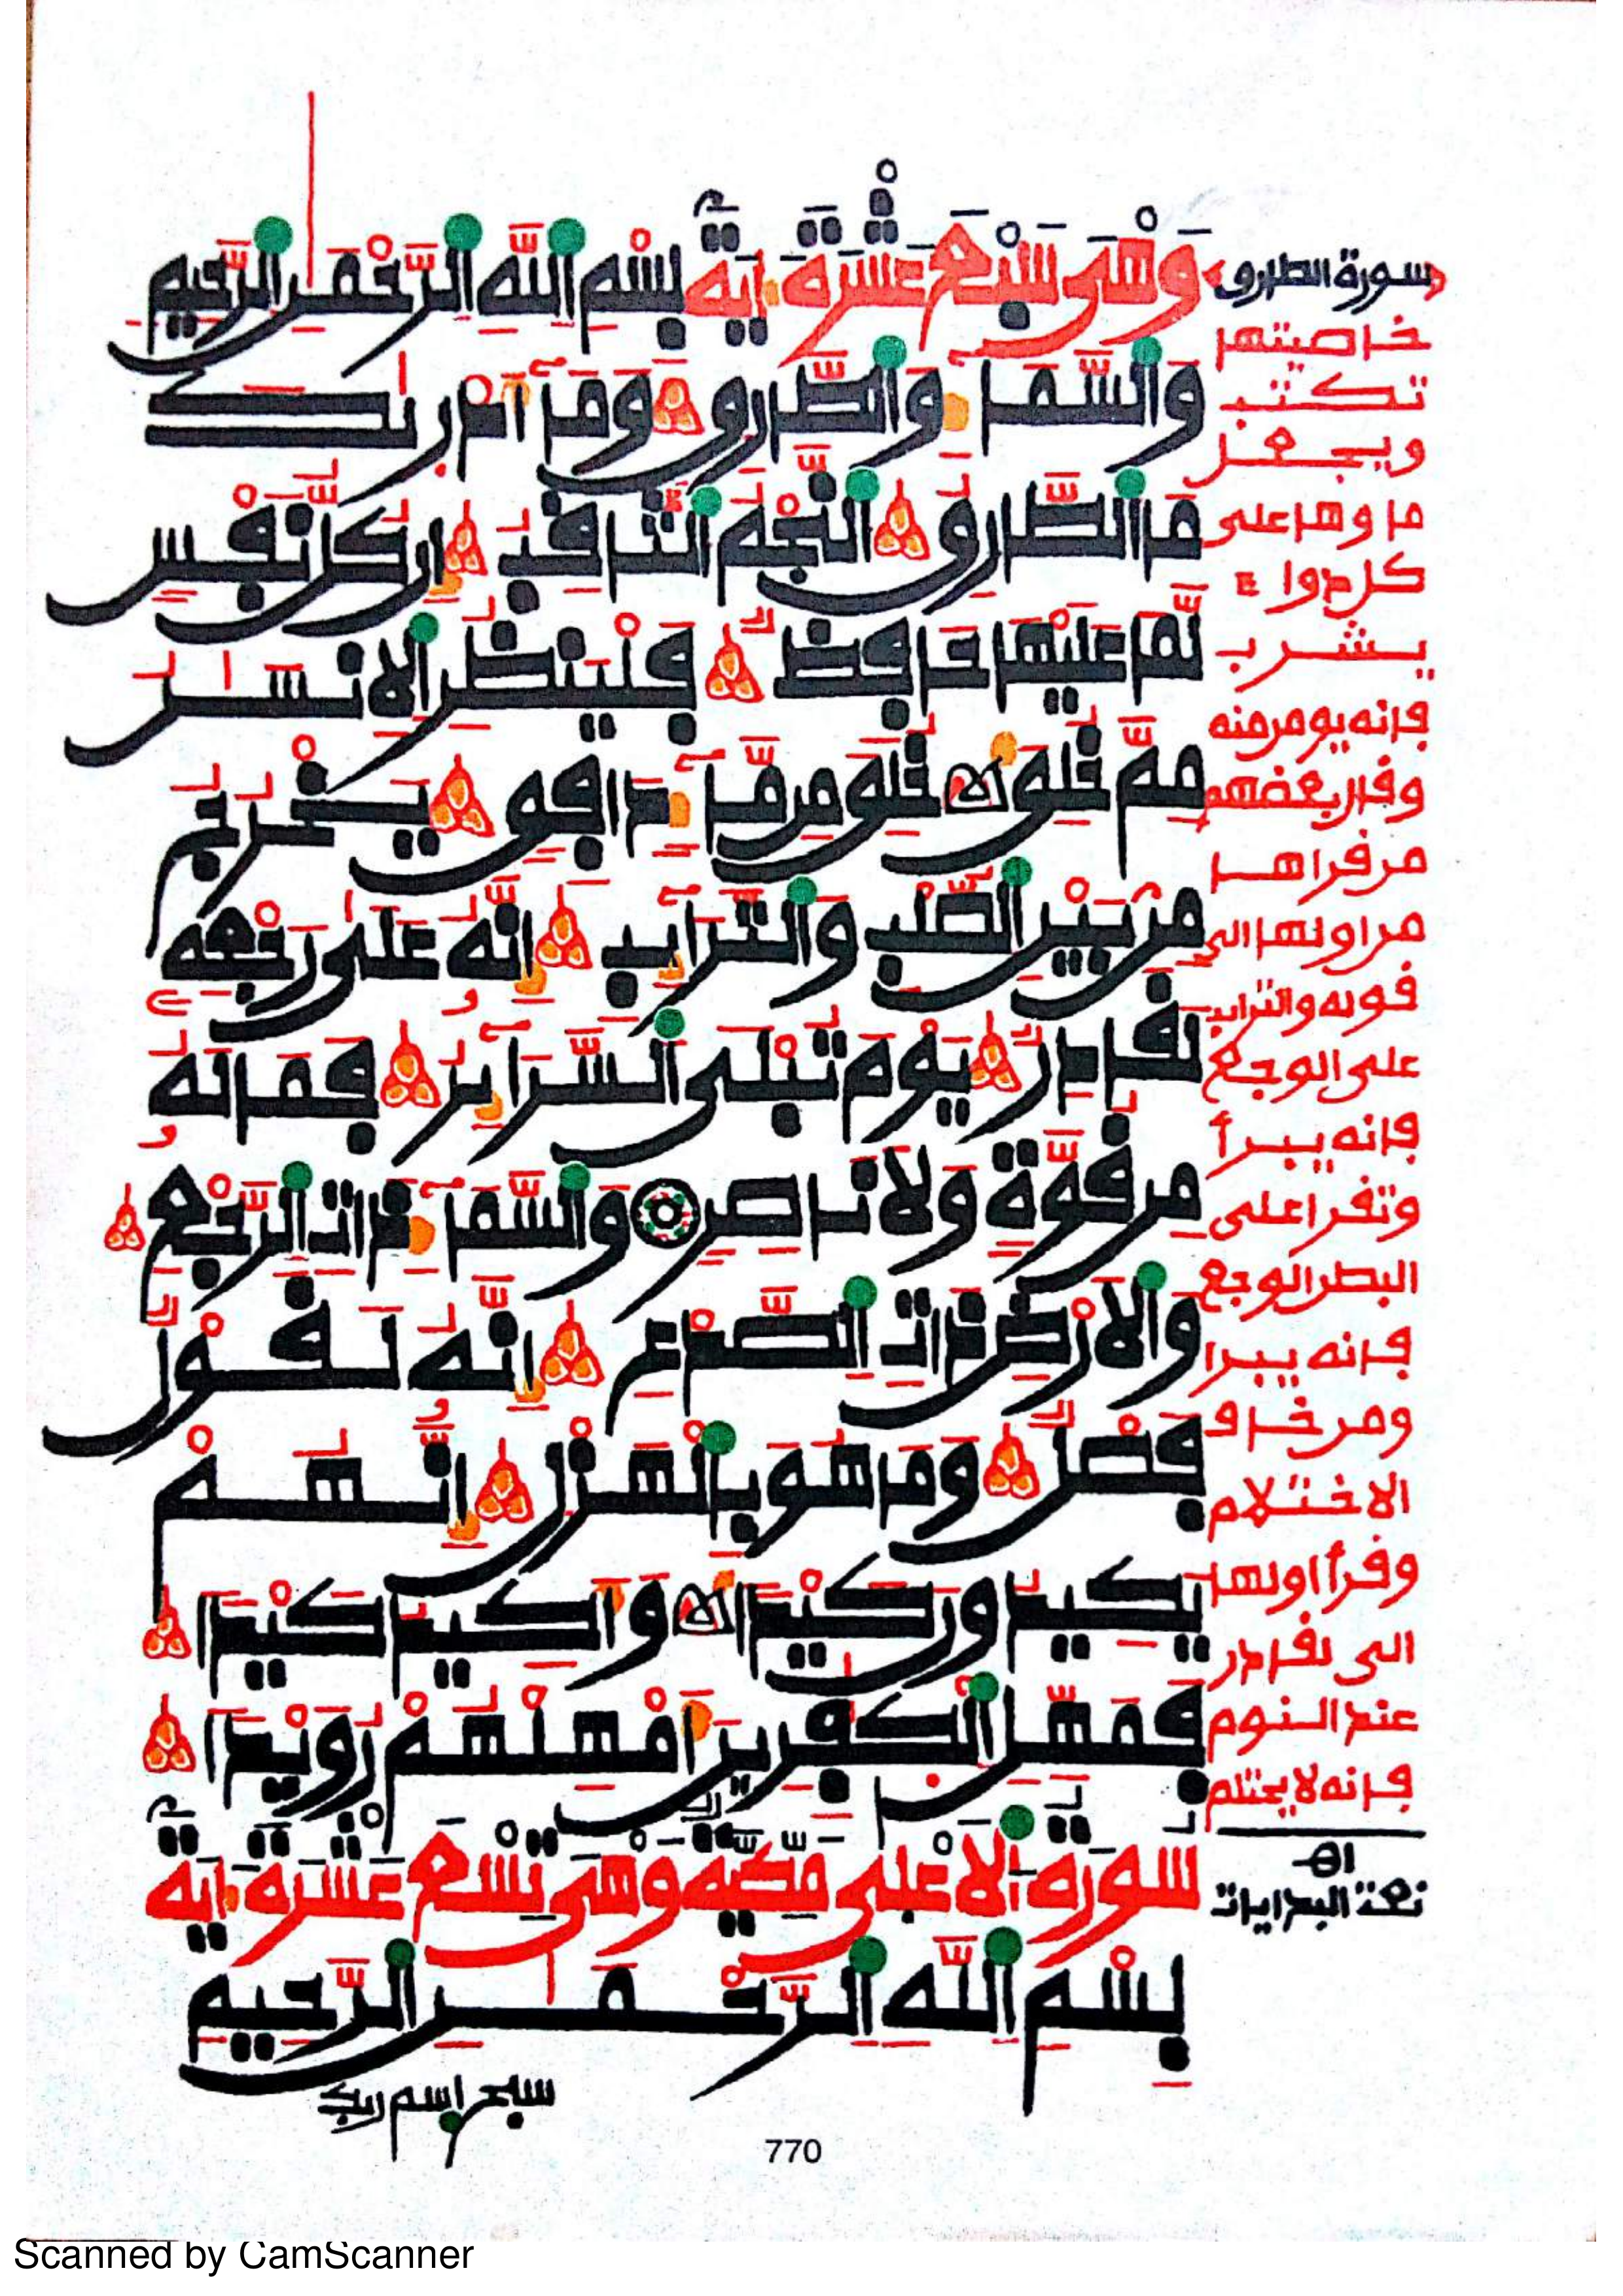 سورة الطارق
وَهْىَ سَبْعَ عَشْرَةَ ءَايَةً بِسْمِ اللَّهِ الرَّحْمَٰنِ الرَّحِيمِ
وَالسَّمَآءِ وَالطَّارِقِ وَمَآ أَدْرَىٰكَ
مَا الطَّارِقُ النَّجْمُ الثَّاقِبُ إِن كُلُّ نَفْسٍ
لَّمَا عَلَيْهَا حَافِظٌ فَلْيَنظُرِ الِانسَٰنُ
مِمَّ خُلِقَ خُلِقَ مِن مَّآءٍ دَافِقٍ يَخْرُجُ
مِنۢ بَيْنِ الصُّلْبِ وَالتَّرَآئِبِ إِنَّهُۥ عَلَىٰ رَجْعِهِۦ
لَقَادِرٌ يَوْمَ تُبْلَى السَّرَآئِرُ فَمَا لَهُۥ
مِن قُوَّةٍ وَلَا نَاصِرٍ وَالسَّمَآءِ ذَاتِ الرَّجْعِ
وَالَارْضِ ذَاتِ الصَّدْعِ إِنَّهُۥ لَقَوْلٌ
فَصْلٌ وَمَا هُوَ بِالْهَزْلِ إِنَّهُمْ
يَكِيدُونَ كَيْدًا وَأَكِيدُ كَيْدًا
فَمَهِّلِ الْكَٰفِرِينَ أَمْهِلْهُمْ رُوَيْدًا
سُورَةُ الَاعْلَى مَكِّيَّةٌ وَهْىَ تِسْعَ عَشْرَةَ ءَايَةً
بِسْمِ اللَّهِ الرَّحْمَٰنِ الرَّحِيمِ
سبح اسم ربك
خاصيتها
تكتب
ويجعل
ماوها على
كل دواء
يشرب
فانه يومن منه
وقال بعضهم
من قراها
من اولها الى
قوله والترايب
على الوجع
فانه يبرأ
وتقرا على
البطن الوجع
فانه يبرا
ومن خاف
الاحتلام
وقرأ اولها
الى لقادر
عند النوم
فانه لا يحتلم
اه
نعت البدايات
770
Scanned by CamScanner